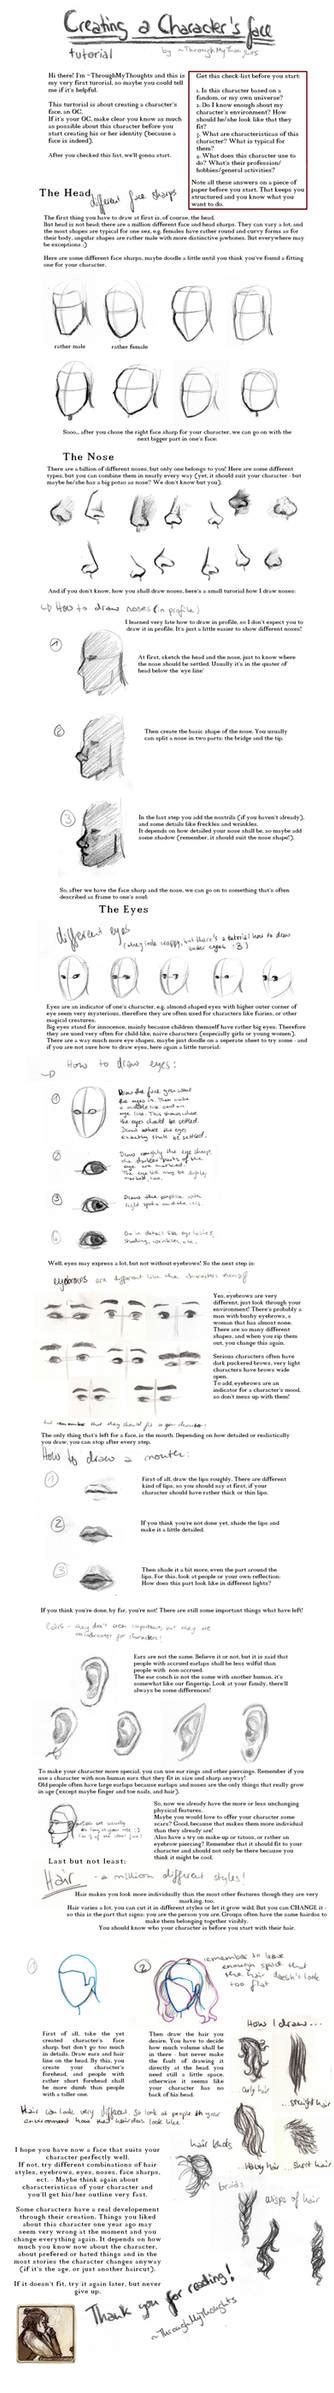 Creating a Character's face
tutorial
by ~ThroughMyThoughts
Hi there! I'm ~ThroughMyThoughts and this is
my very first turorial, so maybe you could tell
me if it's helpful.
This turtorial is about creating a character's
face, an OC.
If it's your OC, make clear you know as much
as possible about this character before you
start creating his or her identity (because a
face is indeed).
After you checked this list, we'll gonna start.
Get this check-list before you start:
1. Is this character based on a
fandom, or my own universe?
2. Do I know enough about my
character's environment? How
should he/she look like that they
fit?
3. What are characteristicas of this
character? What is typical for
them?
4. What does this character use to
do? What's their profession/
hobbies/general activities?
Note all these answers on a piece of
paper before you start. That keeps you
structured and you know what you
want to do.
The Head
different face sharps
The first thing you have to draw at first is, of course, the head.
But head is not head; there are a million different face and head sharps. They can vary a lot, and
the most shapes are typical for one sex, e.g. females have rather round and curvy forms as for
their body, angular shapes are rather male with more distinctive jawbones. But everywhere may
be exceptions ;)
Here are some different face sharps, maybe doodle a little until you think you've found a fitting
one for your character.
rather male
rather female
Sooo,, after you chose the right face sharp for your character, we can go on with the
next bigger part in one's face:
The Nose
There are a billion of different noses, but only one belongs to you! Here are some different
types, but you can combine them in nearly every way (yet, it should suit your character - but
maybe he/she has a big potao as nose? We don't know but you).
And if you don't know, how you shall draw noses, here's a small turorial how I draw noses:
How to draw noses (in profile)
I learned very late how to draw in profile, so I don't expect you to
draw it in profile. It's just a little easier to show different noses!
1
At first, sketch the head and the nose, just to know where
the nose should be settled. Usually it's in the quater of
head below the 'eye line'
2
Then create the basic shape of the nose. You usually
can split a nose in two parts: the bridge and the tip.
3
In the last step you add the nostrils (if you haven't already),
and some details like freckles and wrinkles.
It depends on how detailed your nose shall be, so maybe add
some shadow (remember, it should suit the nose shape!).
So, after we have the face sharp and the nose, we can go on to something that's often
described as frame to one's soul:
The Eyes
different eyes
(they look crappy, but there's a tutorial how to draw
under eyes :3)
Eyes are an indicator of one's character, e.g. almond-shaped eyes with higher outer corner of
eye seem very mysterious, therefore they are often used for characters like fairies, or other
magical creatures.
Big eyes stand for innocence, mainly because children themself have rather big eyes. Therefore
they are used very often for child-like, naive characters (especially girls or young women).
There are a way much more eye shapes, maybe just doodle on a seperate sheet to try some - and
if you are not sure how to draw eyes, here again a little turorial:
How to draw eyes:
1
2
3
4
Well, eyes may express a lot, but not without eyebrows! So the next step is:
eyebrows are different like the characters themself
Yes, eyebrows are very
different, just look through your
environment! There's probably a
man with bushy eyebrows, a
woman that has almost none.
There are so many different
shapes, and when you rip them
out, you change this again.
Serious characters often have
dark puckered brows, very light
characters have brows wide
open.
To add, eyebrows are an
indicator for a character's mood,
so don't mess up with them!
but remember that they should fit to your character!
The only thing that's left for a face, is the mouth. Depending on how detailed or realistically
you draw, you can stop after every step.
How to draw a mouth:
1
First of all, draw the lips roughly. There are different
kind of lips, so you should say at first, if your
character should have rather thick or thin lips.
2
If you think you're not done yet, shade the lips and
make it a little detailed.
3
Then shade it a bit more, even the part around the
lips. For this, look at people or your own reflection:
How does this part look like in different lights?
If you think you're done, by far, you're not! There are still some important things what have left!
Ears are not the same. Believe it or not, but it is said that
people with accrued earlaps shall be less wilful than
people with non accrued.
The ear conch is not the same with another human, it's
somewhat like our fingertip. Look at your family, there'll
always be some differences!
To make your character more special, you can use ear rings and other piercings. Remember if you
use a character with non human ears that they fit in size and sharp anyway!
Old people often have large earlaps because earlaps and noses are the only things that really grow
in age (except maybe finger and toe nails, and hair).
So, now we already have the more or less unchanging
physical features.
Maybe you would love to offer your character some
scars? Good, because that makes them more individual
than they already are!
Also have a try on make-up or tatoos, or rather an
eyebrow piercing? Remember that it should fit to your
character and should not only be there because you
think it might be cool.
Last but not least:
Hair - a million different styles!
Hair makes you look more individually than the most other features though they are very
marking, too.
Hair varies a lot, you can cut it in different styles or let it grow wild. But you can CHANGE it -
so this is the part that signs: you are the person you are. Groups often have the same hairdos to
make them belonging together visibly.
You should know who your character is before you start with their hair.
1
2
remember to leave
enough space that
the hair doesn't look
too flat
First of all, take the yet
created character's face
sharp, but don't go too much
in details. Draw ears and hair
line on the head. By this, you
create your character's
forehead, and people with
rather short forehead shall
be more dumb than people
with a taller one.
Then draw the hair you
desire. You have to decide
how much volume shall be
in there - but never make
the fault of drawing it
directly at the head, you
need still a little space,
otherwise it seems like
your character has no
back of his head.
How I draw...
...curly hair
...straight hair
...wavy hair
...short hair
Hair can look very different so look at people in your
environment how their hairdos look like!
hair knots
braids
wisps of hair
I hope you have now a face that suits your
character perfectly well.
If not, try different combinations of hair
styles, eyebrows, eyes, noses, face sharps,
ect. - Maybe think again about
characteristicas of your character and
you'll get his/her outline very fast.
Some characters have a real developement
through their creation. Things you liked
about this character one year ago may
seem very wrong at the moment and you
change everything again. It depends on how
much you know now about the character,
about prefered or hated things and in the
most stories the character changes anyway
(if it's the age, or just another haircut).
If it doesn't fit, try it again later, but never
give up.
Thank you for reading!
~ThroughMyThoughts